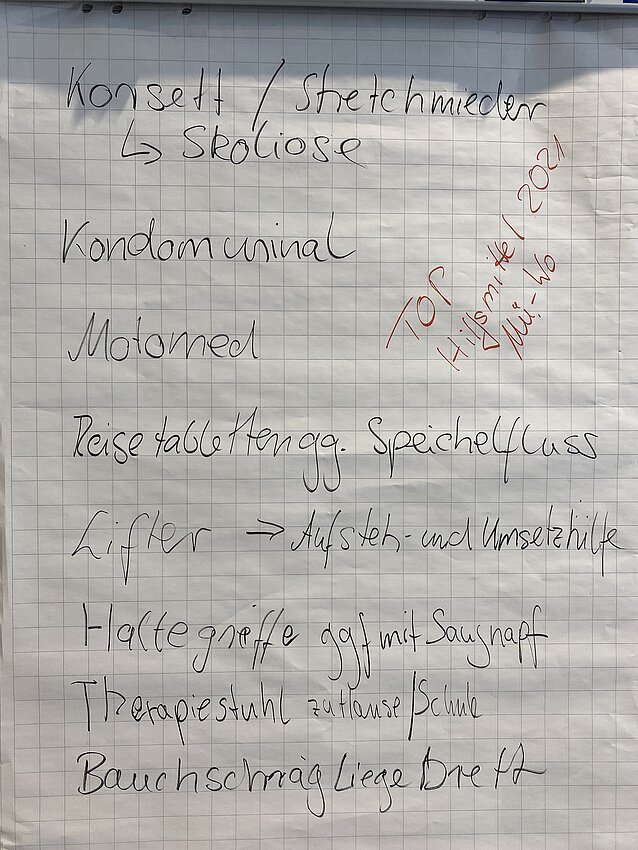 Korsett / Stretchmieder
↳ Skoliose
TOP
Hilfsmittel 2021
Mü.-Wo
Kondomurinal
Motomed
Reisetabletten gg. Speichelfluss
Lifter → Aufsteh- und Umsetzhilfe
Haltegriffe ggf mit Saugnapf
Therapiestuhl zuHause/Schule
BauchschrägLiegeBrett